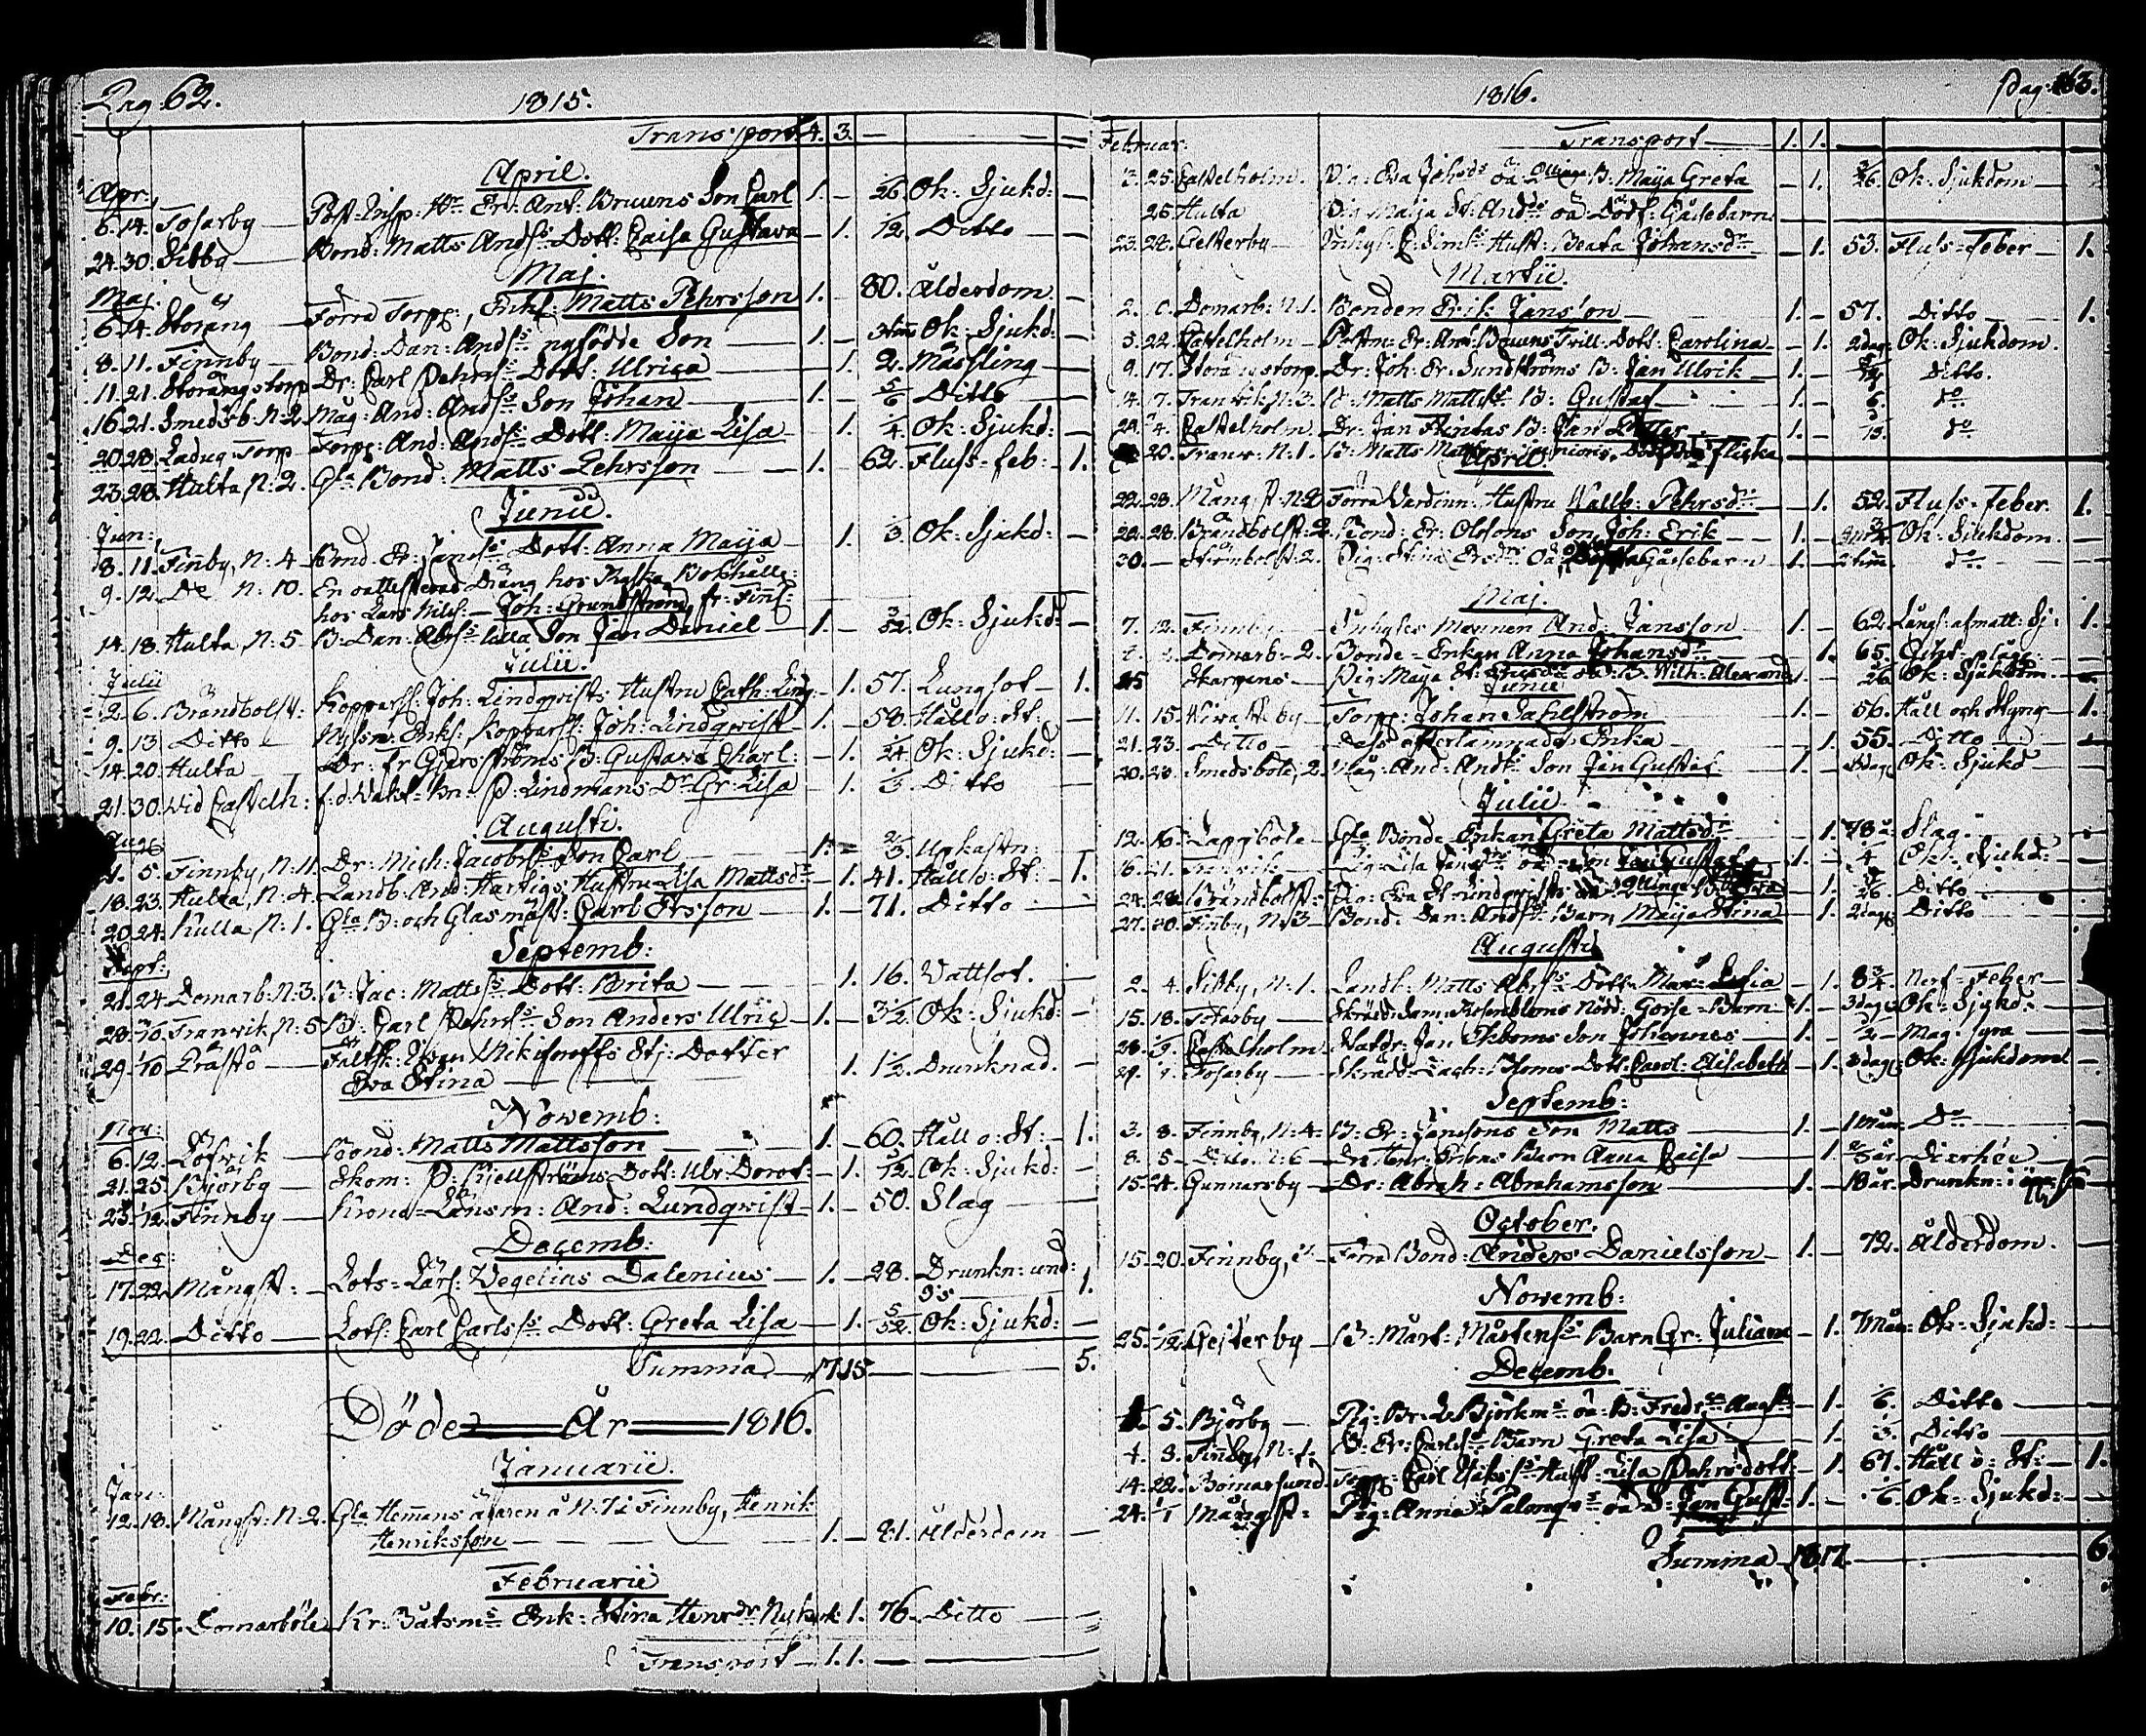 Pag. 62. 1815.
Transport 4. 3. —
April.
Apr:
6. 14. Tosarby — Post-Insp: Er: Ant: Bruuns Son Carl 1. 1/26. Ok: Sjukd: —
24. 30. Sibby — Bond: Matts Andss: Dott: Caisa Gustava — 1. 1/12. Ditto —
Maj.
Maj.
6. 14. Storäng — Förra Torp:, Enkl: Matts Pehrsson 1. — 80. Ålderdom. —
8. 11. Finnby — Bond: Dan: Andss: nyfödde Son — 1. — Ok: Sjukd: —
11. 21. Storängstorp Dr: Carl Pehrss: Dott: Ulrica — 1. 2. Mässling —
16. 21. Smedsb. N: 2. Måg: And: Andss: Son Johan — 1. — 5/6 Ditto —
20. 28. Ladug Torp — Torp: And: Andss: Dott: Maija Lisa — 1. 1/4. Ok: Sjukd: —
23. 28. Hulta N: 2. Gla Bond: Matts Pehrsson — 1. — 62. Fluss-feb: — 1.
Junii.
Jun:
8. 11. Finby, N: 4 Bond. Er: Janss: Dott: Anna Maija — 1. 1/3. Ok: Sjukd: —
9. 12. Do N: 10. En oattesterad Dräng hos Ryska
hos Lars Nils: — Joh: Grundström, fr: Finl:
14. 18. Hulta, N: 5 B: Dan: Abrss: lilla Son Jan Daniel — 1. — 3/52. Ok: Sjukd: —
Julii.
Julii
2. 6. Brändbolst: Kopparsl: Joh: Lindqwists Hustru Cath: — 1. 57. Lungsot — 1.
9. 13 Ditto — Enkl: Kopparsl: Joh: Lindqwist — 1. — 58. Håll o: St: —
14. 20. Hulta — Dr: Er Gjersströms B: Gustava Charl: — 1. 1/24. Ok: Sjukd: —
21. 30. Wid Castelh: P: Lindmans Dr Gr: Lisa — 1. 1/3. Ditto —
Augusti.
Aug
1. 5. Finnby, N: 11. Dr: Mich: Jacobss: Son Carl — 1. — 2/3. Upkastn: —
18. 23. Hulta, N: 4. Landb: And: Hartigs Hustru Lisa Mattsdr — 1. 41. Håll o: St: — 1.
20. 24. Kulla N: 1. Gla B: och Glasmäst: Carl Ersson — 1. — 71. Ditto —
Septemb:
Sept:
21. 24. Domarb: N: 3. B: Jac: Mattss: Dott: Brita — 1. 16. Wattsot. —
28. 1/10. Tranwik, N: 5 B: Carl Pehrss: Son Anders Ulric — 1. — 3 1/2. Ok: Sjukd: —
29. 1/10 Prästö — Fältsk: Iwan Nikiforoffs Stj: Dotter
Eva Stina — 1. 1 1/2. Drunknad. —
Nowemb:
Nov:
6. 12. Löfwik — Bond: Matts Mattsson — 1. — 60. Håll o: St: — 1.
21. 25. Björby — Skom: P: Kjellströms Dott: Ulr: Dorot: — 1. 5/12. Ok: Sjukd: —
25. Finnby — Krono-Länsm: And: Lundqwist — 1. — 50. Slag —
Decemb:
Dec:
17. 22. Mångst: — Lots-Lärl: Wegelius Dalenius — 1. — 28. Drunkn: und:
Is — 1.
19. 22. Ditto — Lots: Carl Carlss: Dott: Greta Lisa — 1. 5/52. Ok: Sjukd: —
Summa — 17 15 — 5.
Döde — År — 1816.
Januarii.
Jan:
12. 18. Mångst: N: 2. Gla Hemans ägaren å N: 7 i Finnby, Henrik
Henriksson — 1. — 81. Ålderdom —
Februarii
Febr:
10. 15. Domarböle Kr: Båtsm: Enk: Stina Henrsdr 1. 76. Ditto —
Transport — 1. 1. —
1816. Pag: 63.
Februar: Transport — 1. 1.
25. Castelholm. Pig: Eva Johsdr oä: B: Maija Greta — 1. Ok: Sjukdom
25. Hulta Pig Maija St: Andsdr oä Dödf: Gåssebarn
23. 28. Gesterby — Inhys: E: Simss: Hust: Beata Johansdr — 1. 53. Fluss-Feber — 1.
Martii.
2. Domarb: N: 1. Bonden Erik Jansson — 1. — 57. Ditto — 1.
3. 22. Castelholm — Er: Ant: Bruuns Trill: Dott: Carolina — 1. 2dag. Ok: Sjukdom.
9. 17. Storängstorp. Dr: Joh: Er: Sundströms B: Jan Ulrik — 1. — Ditto.
14. 7. Tranwik, N: 3. B: Matts Mattss: B: Gustaf — 1. — do
Castelholm Dr: Jan Flintas B: Jan Petter 1. — do
20. Tranw: N: 1. B: Matts flicka
April
22. 28. Mång: N 2 Förra Hustru Wallb: Pehrsdr — 1. 52. Fluss-Feber. 1.
22. 28. Brändbolst: 2. Bond: Er: Olssons Son Joh: Erik — 1. — Ok: Sjukdom.
30. — Strömbolst: 2. Pig: Stina Ersdr: oä Gåssebarn — 1. — 2 tim: do
Maj.
7. 12. Finnby — Inhyses Mannen And: Jansson — 1. — 62. 1.
Domarb: 2. Bonde-Enkan Anna Johansdr — 1. 65. —
Skarpans — Pig Maja B: Wilh: Alexander 1. Ok: Sjukdom. —
Junii
11. 15. — Torp: Johan Dahlström — 1. — 56. Håll och Styng — 1.
21. 23. Ditto — Dess efterlämnade Enka — 1. 55. Ditto —
20. Smedsböle, 2. Måg: And: Andss: Son Jan Gustaf — 1. — Ok: Sjukd —
Julii
12. 16. Lappböle — Gla Bonde-Enkan Greta Mattsdr — 1. 78 å: Slag. —
16. 21. Pig: Lisa oä Son Jan Gustaf — 1. — Ok: Sjukd: —
Brändbolst: Pig: Eva — 1. Ditto —
27. 30. Finby, N: 3 — Bond: Dan: Andss: Barn Maija Stina — 1. 2dag: Ditto —
Augusti
2. 4. Sibby, N: 1. Landb: Matts Abrss: Dott: Mar: — 1. 8 3/4. Nerf-Feber —
15. 18. Tosarby — Skrädd: Sam: Rosenbloms Nöd: Gosse-Barn 1. — 3dag: Ok: Sjukd: —
28. Castelholm — Jan Ekboms Son Johannes — 1. —
29. Tosarby — Skrädd: Zach: Bloms Dott: Carol: Elisabeth — 1. Ok: Sjukdom —
Septemb:
3. 8. Finnby, N: 4. B: Er: Janssons Son Matts — 1. — 1 Mån: Do —
8. Ditto N: 6 — Barn Anna Caisa — 1. Diarhée —
15. 24. Gunnarsby — Dr: Abrah: Abrahamsson — 1. — 18 år. Drunkn: i
October.
15. 20. Finnby, — Förra Bond: Anders Danielsson — 1. — 72. Ålderdom. —
Nowemb:
25. 1/12. Gesterby — B: Mårt: Mårtenss: Barn Gr: Juliana — 1. 7 Mån: Ok: Sjukd: —
Decemb.
5. Björby — Pig: Br: L: Björkms: oä: B: Fredr: Aug: — 1. 1/6. Ditto —
4. 8. Finby, N: 1. B: Er: Carlss: Barn Greta Lisa — 1. 1/3. Ditto —
14. 22. Bomarsund Torp: Carl Hust: Lisa Pehrsdott — 1. 61. Håll o: St: — 1.
24. 1/1 Mångst: Pig: Anna oä B: Jan Gust: 1. — 1/6. Ok: Sjukd: —
Summa — 18 17. — 6.